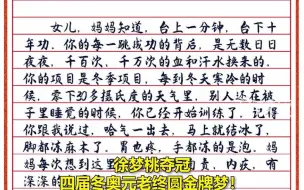 女儿，妈妈知道，台上一分钟，台下十
年功。你的每一跳成功的背后，是无数日日
夜夜，千百次，千万次的血和汗水换来的。
你的项目是冬季项目，每到冬天寒冷的时
候，零下30多摄氏度的天气里，别人还在被
子里睡觉的时候，你已经开始训练了。记得
你跟我说过，哈气一出去，马上就结冰了，
脚都冻麻木了。胃也疼，手都冻的是泡。妈
妈每次想到这
责，内疚，有
徐梦桃夺冠
四届冬奥元老终圆金牌梦！